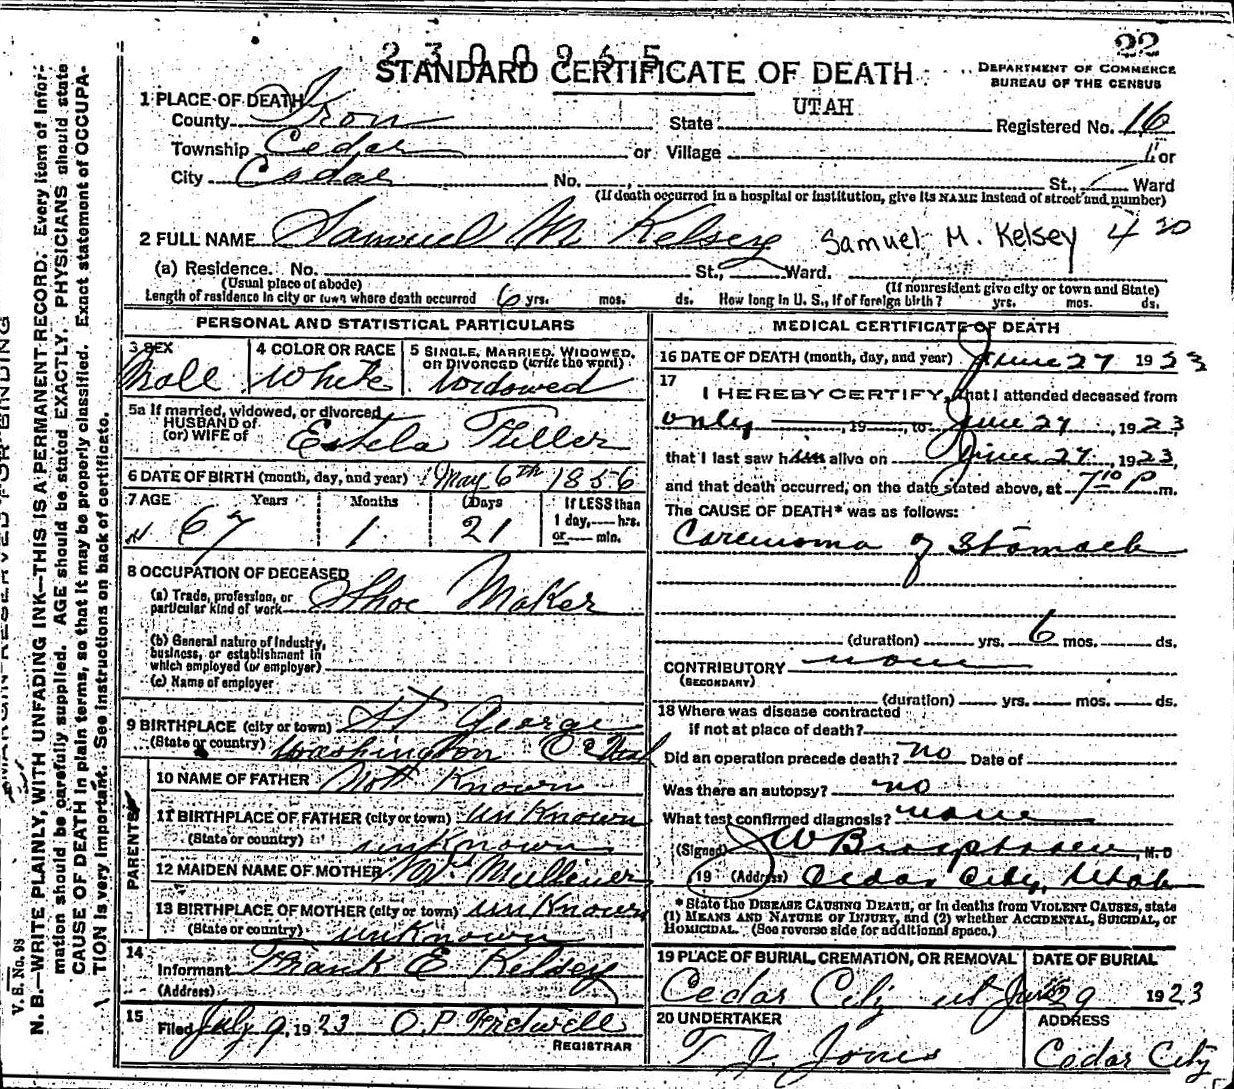 2300965
22
STANDARD CERTIFICATE OF DEATH
DEPARTMENT OF COMMERCE
BUREAU OF THE CENSUS
1 PLACE OF DEATH
UTAH
County Iron State Registered No. 16
Township Cedar or Village or
City Cedar No. St., Ward
(If death occurred in a hospital or institution, give its NAME instead of street and number)
2 FULL NAME Samuel M Kelsey Samuel M. Kelsey 4 20
(a) Residence. No. St., Ward.
(Usual place of abode) (If nonresident give city or town and State)
Length of residence in city or town where death occurred 6 yrs. mos. ds. How long in U. S., if of foreign birth? yrs. mos. ds.
PERSONAL AND STATISTICAL PARTICULARS
3 SEX 4 COLOR OR RACE 5 SINGLE, MARRIED, WIDOWED,
OR DIVORCED (write the word)
Male White Widowed
5a If married, widowed, or divorced
HUSBAND of
(or) WIFE of Estela Fuller
6 DATE OF BIRTH (month, day, and year) May 6th 1856
7 AGE Years Months Days If LESS than
1 day, hrs.
67 1 21 or min.
8 OCCUPATION OF DECEASED
(a) Trade, profession, or
particular kind of work Shoe Maker
(b) General nature of industry,
business, or establishment in
which employed (or employer)
(c) Name of employer
9 BIRTHPLACE (city or town) St George
(State or country) Washington Co Utah
PARENTS
10 NAME OF FATHER Nott Known
11 BIRTHPLACE OF FATHER (city or town) unKnown
(State or country) unKnown
12 MAIDEN NAME OF MOTHER Mulliner
13 BIRTHPLACE OF MOTHER (city or town) unKnown
(State or country) unKnown
14
Informant Frank E Kelsey
(Address)
15
Filed July 9, 1923 O.P Fretwell
REGISTRAR
MEDICAL CERTIFICATE OF DEATH
16 DATE OF DEATH (month, day, and year) June 27 1923
17
I HEREBY CERTIFY, that I attended deceased from
only, 19, to June 27, 1923
that I last saw him alive on June 27, 1923,
and that death occurred, on the date stated above, at 7 10 P m.
The CAUSE OF DEATH* was as follows:
Carcinoma of Stomach
(duration) yrs. 6 mos. ds.
CONTRIBUTORY none
(SECONDARY)
(duration) yrs. mos. ds.
18 Where was disease contracted
if not at place of death?
Did an operation precede death? no Date of
Was there an autopsy? no
What test confirmed diagnosis? none
(Signed) M. D
19 (Address) Cedar City, Utah
* State the DISEASE CAUSING DEATH, or in deaths from VIOLENT CAUSES, state
(1) MEANS AND NATURE OF INJURY, and (2) whether ACCIDENTAL, SUICIDAL, or
HOMICIDAL. (See reverse side for additional space.)
19 PLACE OF BURIAL, CREMATION, OR REMOVAL DATE OF BURIAL
Cedar City ut June 29 1923
20 UNDERTAKER ADDRESS
T J Jones Cedar City
V. S. No. 98
N. B.—WRITE PLAINLY, WITH UNFADING INK—THIS IS A PERMANENT RECORD. Every item of infor-
mation should be carefully supplied. AGE should be stated EXACTLY. PHYSICIANS should state
CAUSE OF DEATH in plain terms, so that it may be properly classified. Exact statement of OCCUPA-
TION is very important. See instructions on back of certificate.